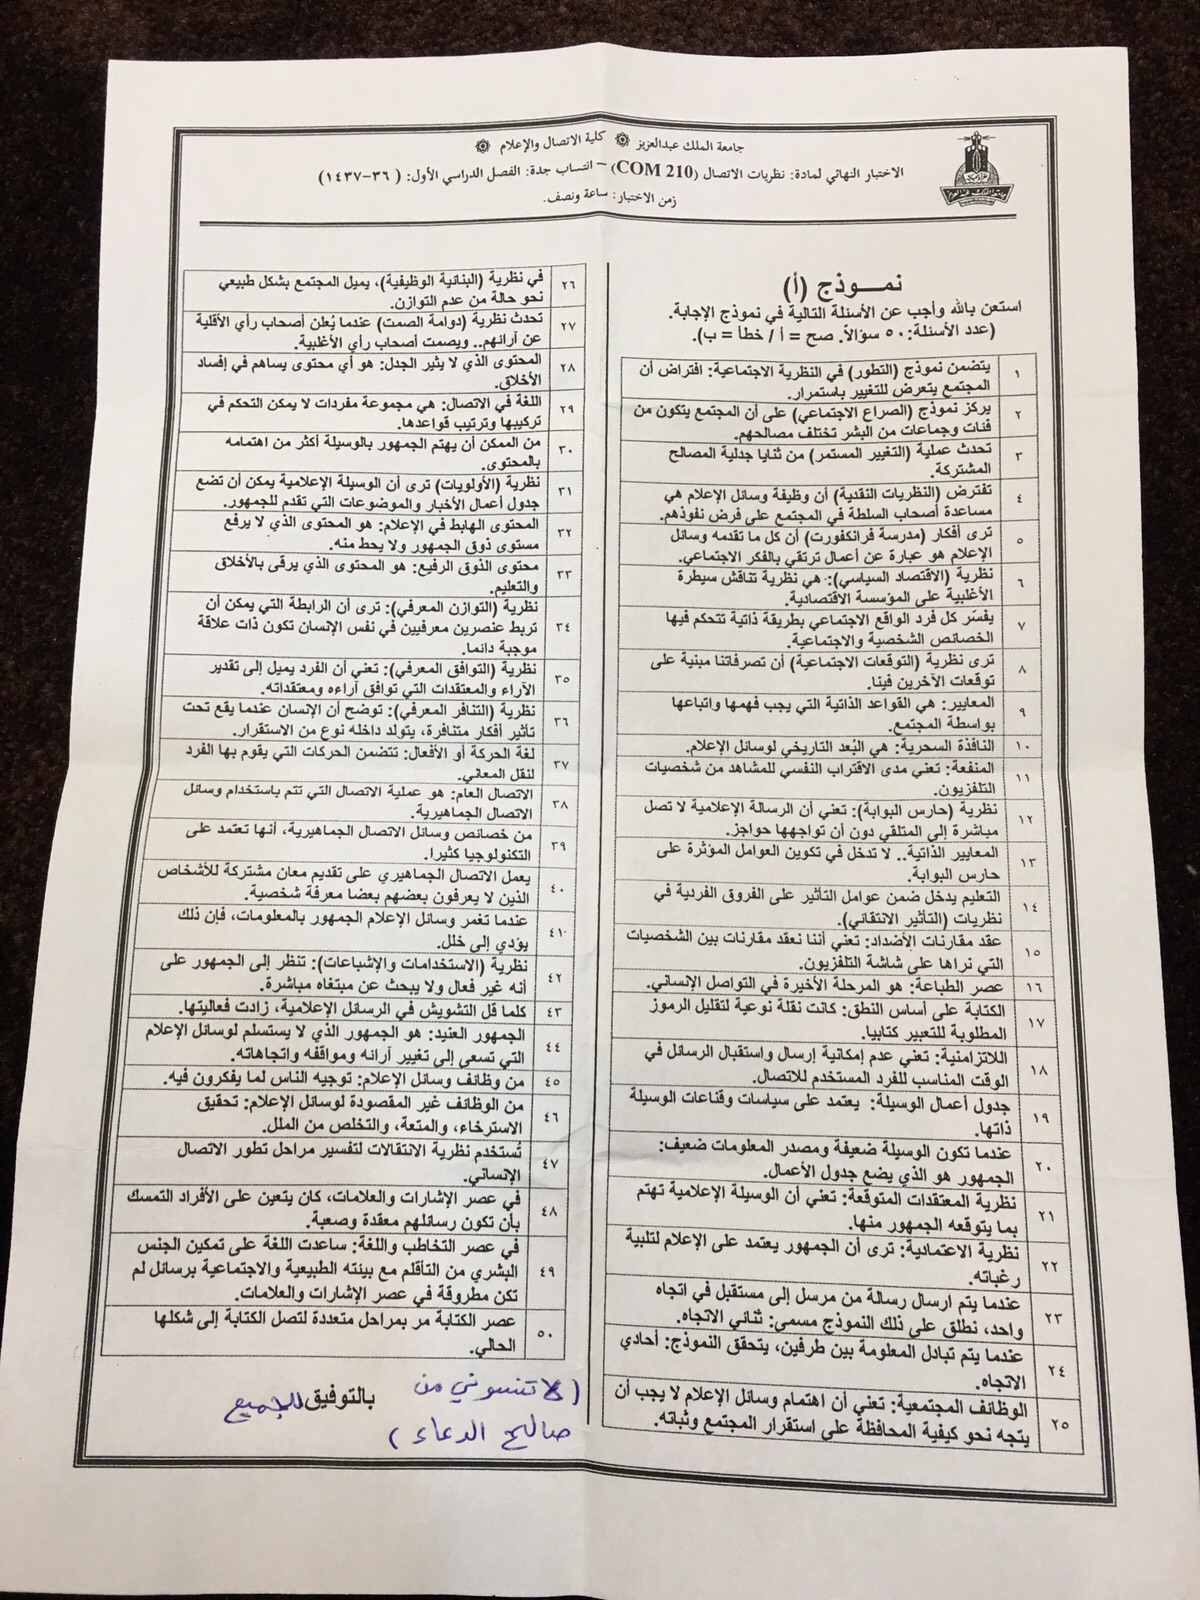 جامعة الملك عبدالعزيز ۞ كلية الاتصال والإعلام ۞
الاختبار النهائي لمادة: نظريات الاتصال (COM 210) – انتساب جدة: الفصل الدراسي الأول: (٣٦-١٤٣٧)
زمن الاختبار: ساعة ونصف.
نمـــوذج (أ)
استعن بالله وأجب عن الأسئلة التالية في نموذج الإجابة.
(عدد الأسئلة: ٥٠ سؤالاً. صح = أ / خطأ = ب).
١ يتضمن نموذج (التطور) في النظرية الاجتماعية: افتراض أن
المجتمع يتعرض للتغيير باستمرار.
٢ يركز نموذج (الصراع الاجتماعي) على أن المجتمع يتكون من
فئات وجماعات من البشر تختلف مصالحهم.
٣ تحدث عملية (التغيير المستمر) من ثنايا جدلية المصالح
المشتركة.
٤ تفترض (النظريات النقدية) أن وظيفة وسائل الإعلام هي
مساعدة أصحاب السلطة في المجتمع على فرض نفوذهم.
٥ ترى أفكار (مدرسة فرانكفورت) أن كل ما تقدمه وسائل
الإعلام هو عبارة عن أعمال ترتقي بالفكر الاجتماعي.
٦ نظرية (الاقتصاد السياسي): هي نظرية تناقش سيطرة
الأغلبية على المؤسسة الاقتصادية.
٧ يفسّر كل فرد الواقع الاجتماعي بطريقة ذاتية تتحكم فيها
الخصائص الشخصية والاجتماعية.
٨ ترى نظرية (التوقعات الاجتماعية) أن تصرفاتنا مبنية على
توقعات الآخرين فينا.
٩ المعايير: هي القواعد الذاتية التي يجب فهمها واتباعها
بواسطة المجتمع.
١٠ النافذة السحرية: هي البُعد التاريخي لوسائل الإعلام.
١١ المنفعة: تعني مدى الاقتراب النفسي للمشاهد من شخصيات
التلفزيون.
١٢ نظرية (حارس البوابة): تعني أن الرسالة الإعلامية لا تصل
مباشرة إلى المتلقي دون أن تواجهها حواجز.
١٣ المعايير الذاتية.. لا تدخل في تكوين العوامل المؤثرة على
حارس البوابة.
١٤ التعليم يدخل ضمن عوامل التأثير على الفروق الفردية في
نظريات (التأثير الانتقائي).
١٥ عقد مقارنات الأضداد: تعني أننا نعقد مقارنات بين الشخصيات
التي نراها على شاشة التلفزيون.
١٦ عصر الطباعة: هو المرحلة الأخيرة في التواصل الإنساني.
١٧ الكتابة على أساس النطق: كانت نقلة نوعية لتقليل الرموز
المطلوبة للتعبير كتابيا.
١٨ اللاتزامنية: تعني عدم إمكانية إرسال واستقبال الرسائل في
الوقت المناسب للفرد المستخدم للاتصال.
١٩ جدول أعمال الوسيلة: يعتمد على سياسات وقناعات الوسيلة
ذاتها.
٢٠ عندما تكون الوسيلة ضعيفة ومصدر المعلومات ضعيف:
الجمهور هو الذي يضع جدول الأعمال.
٢١ نظرية المعتقدات المتوقعة: تعني أن الوسيلة الإعلامية تهتم
بما يتوقعه الجمهور منها.
٢٢ نظرية الاعتمادية: ترى أن الجمهور يعتمد على الإعلام لتلبية
رغباته.
٢٣ عندما يتم ارسال رسالة من مرسل إلى مستقبل في اتجاه
واحد، نطلق على ذلك النموذج مسمى: ثنائي الاتجاه.
٢٤ عندما يتم تبادل المعلومة بين طرفين، يتحقق النموذج: أحادي
الاتجاه.
٢٥ الوظائف المجتمعية: تعني أن اهتمام وسائل الإعلام لا يجب أن
يتجه نحو كيفية المحافظة على استقرار المجتمع وثباته.
٢٦ في نظرية (البنائية الوظيفية)، يميل المجتمع بشكل طبيعي
نحو حالة من عدم التوازن.
٢٧ تحدث نظرية (دوامة الصمت) عندما يُعلن أصحاب رأي الأقلية
عن آرائهم.. ويصمت أصحاب رأي الأغلبية.
٢٨ المحتوى الذي لا يثير الجدل: هو أي محتوى يساهم في إفساد
الأخلاق.
٢٩ اللغة في الاتصال: هي مجموعة مفردات لا يمكن التحكم في
تركيبها وترتيب قواعدها.
٣٠ من الممكن أن يهتم الجمهور بالوسيلة أكثر من اهتمامه
بالمحتوى.
٣١ نظرية (الأولويات) ترى أن الوسيلة الإعلامية يمكن أن تضع
جدول أعمال الأخبار والموضوعات التي تقدم للجمهور.
٣٢ المحتوى الهابط في الإعلام: هو المحتوى الذي لا يرفع
مستوى ذوق الجمهور ولا يحط منه.
٣٣ محتوى الذوق الرفيع: هو المحتوى الذي يرقى بالأخلاق
والتعليم.
٣٤ نظرية (التوازن المعرفي): ترى أن الرابطة التي يمكن أن
تربط عنصرين معرفيين في نفس الإنسان تكون ذات علاقة
موجبة دائما.
٣٥ نظرية (التوافق المعرفي): تعني أن الفرد يميل إلى تقدير
الآراء والمعتقدات التي توافق آراءه ومعتقداته.
٣٦ نظرية (التنافر المعرفي): توضح أن الإنسان عندما يقع تحت
تأثير أفكار متنافرة، يتولد داخله نوع من الاستقرار.
٣٧ لغة الحركة أو الأفعال: تتضمن الحركات التي يقوم بها الفرد
لنقل المعاني.
٣٨ الاتصال العام: هو عملية الاتصال التي تتم باستخدام وسائل
الاتصال الجماهيرية.
٣٩ من خصائص وسائل الاتصال الجماهيرية، أنها تعتمد على
التكنولوجيا كثيرا.
٤٠ يعمل الاتصال الجماهيري على تقديم معان مشتركة للأشخاص
الذين لا يعرفون بعضهم بعضا معرفة شخصية.
٤١ عندما تغمر وسائل الإعلام الجمهور بالمعلومات، فإن ذلك
يؤدي إلى خلل.
٤٢ نظرية (الاستخدامات والإشباعات): تنظر إلى الجمهور على
أنه غير فعال ولا يبحث عن مبتغاه مباشرة.
٤٣ كلما قل التشويش في الرسائل الإعلامية، زادت فعاليتها.
٤٤ الجمهور العنيد: هو الجمهور الذي لا يستسلم لوسائل الإعلام
التي تسعى إلى تغيير آرائه ومواقفه واتجاهاته.
٤٥ من وظائف وسائل الإعلام: توجيه الناس لما يفكرون فيه.
٤٦ من الوظائف غير المقصودة لوسائل الإعلام: تحقيق
الاسترخاء، والمتعة، والتخلص من الملل.
٤٧ تُستخدم نظرية الانتقالات لتفسير مراحل تطور الاتصال
الإنساني.
٤٨ في عصر الإشارات والعلامات، كان يتعين على الأفراد التمسك
بأن تكون رسائلهم معقدة وصعبة.
٤٩ في عصر التخاطب واللغة: ساعدت اللغة على تمكين الجنس
البشري من التأقلم مع بيئته الطبيعية والاجتماعية برسائل لم
تكن مطروقة في عصر الإشارات والعلامات.
٥٠ عصر الكتابة مر بمراحل متعددة لتصل الكتابة إلى شكلها
الحالي.
بالتوفيق للجميع
(لا تنسوني من
صالح الدعاء)